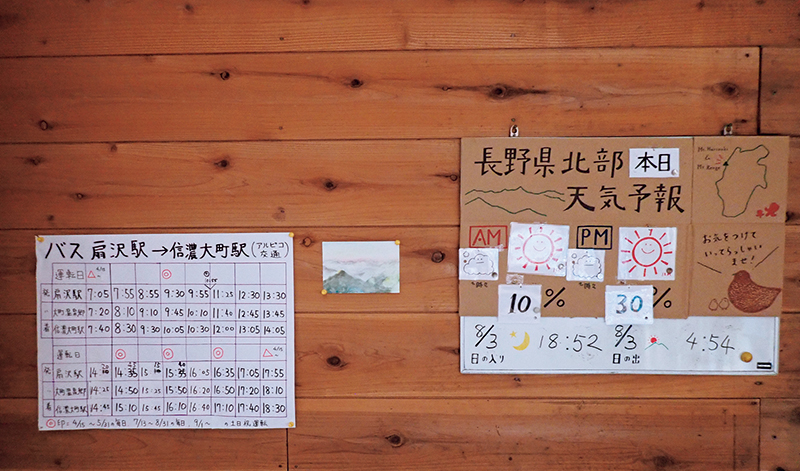 バス 扇沢駅→信濃大町駅(アルピコ交通)
運転日 △ ◎
発 扇沢駅 7:05 7:55 8:55 9:30 9:55 11:25 12:30 13:30
7:20 8:10 9:10 9:45 10:10 11:40 12:45 13:45
着 信濃大町駅 7:40 8:30 9:30 10:05 10:30 12:00 13:05 14:05
運転日 ◎ ◎ ◎ △
発 扇沢駅 14:35 16:05 16:35 17:05 17:55
14:25 14:50 15:25 15:50 16:20 16:50 17:20 18:10
着 信濃大町駅 14:45 15:10 15:45 16:10 16:40 17:10 17:40 18:30
◎印=4/15~5/31の毎日 7/13~8/31の毎日 9/1~ の土日祝運転
長野県北部 本日
天気予報
AM PM
10% 30%
8/3 日の入り 18:52 8/3 日の出 4:54
お気をつけて
いってらっしゃい
ませ!